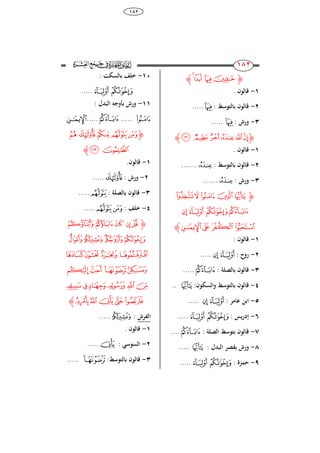 ١٨٢
١٨٢
﴿ خَٰلِدِينَ فِيهَآ أَبَدًا ﴾
١- قالون .
٢- قالون بالتوسط : فِيهَآ .....
٣- ورش : فِيهَآ .....
﴿ إِنَّ ٱللَّهَ عِندَهُۥٓ أَجْرٌ عَظِيمٌ ٢٢ ﴾
١- قالون .
٢- قالون بالتوسط : عِندَهُۥٓ .......
٣- ورش : عِندَهُۥٓ .......
﴿ يَٰٓأَيُّهَا ٱلَّذِينَ ءَامَنُوا۟ لَا تَتَّخِذُوٓا۟
ءَابَآءَكُمْ وَإِخْوَٰنَكُمْ أَوْلِيَآءَ إِنِ
ٱسْتَحَبُّوا۟ ٱلْكُفْرَ عَلَى ٱلْإِيمَٰنِ ﴾
١- قالون :
٢- روح : أَوْلِيَآءَ إِنِ .....
٣- قالون بالصلة : ءَابَآءَكُمْ .....
٤- قالون بالتوسط والسكون: يَٰٓأَيُّهَا ..
٥- ابن عامر : أَوْلِيَآءَ إِنِ .....
٦- إدريس : وَإِخْوَٰنَكُمْ أَوْلِيَآءَ .....
٧- قالون بتوسط الصلة : ءَابَآءَكُمْ ....
٨- ورش بقصر البدل : يَٰٓأَيُّهَا .....
٩- حمزة : وَإِخْوَٰنَكُمْ أَوْلِيَآءَ .....
١٠- خلف بالسكت :
وَإِخْوَٰنَكُمْ أَوْلِيَآءَ .....
١١- ورش بأوجه البدل :
ءَامَنُوا۟ ..... ءَابَآءَكُمْ ..... ٱلْإِيمَٰنِ
﴿ وَمَن يَتَوَلَّهُم مِّنكُمْ فَأُو۟لَٰٓئِكَ هُمُ
ٱلظَّٰلِمُونَ ٢٣ ﴾
١- قالون.
٢- ورش : فَأُو۟لَٰٓئِكَ .....
٣- قالون بالصلة : يَتَوَلَّهُم.....
٤- خلف : وَمَن يَتَوَلَّهُم .....
﴿ قُلْ إِن كَانَ ءَابَآؤُكُمْ وَأَبْنَآؤُكُمْ
وَإِخْوَٰنُكُمْ وَأَزْوَٰجُكُمْ وَعَشِيرَتُكُمْ وَأَمْوَٰلٌ
ٱقْتَرَفْتُمُوهَا وَتِجَٰرَةٌ تَخْشَوْنَ كَسَادَهَا
وَمَسَٰكِنُ تَرْضَوْنَهَآ أَحَبَّ إِلَيْكُم
مِّنَ ٱللَّهِ وَرَسُولِهِۦ وَجِهَادٍ فِى سَبِيلِهِۦ
فَتَرَبَّصُوا۟ حَتَّىٰ يَأْتِىَ ٱللَّهُ بِأَمْرِهِۦ ﴾
الفرش : وَعَشِيرَتُكُمْ .....
١- قالون .
٢- السوسي : يَأْتِىَ .....
٣- قالون بالتوسط: تَرْضَوْنَهَآ .....